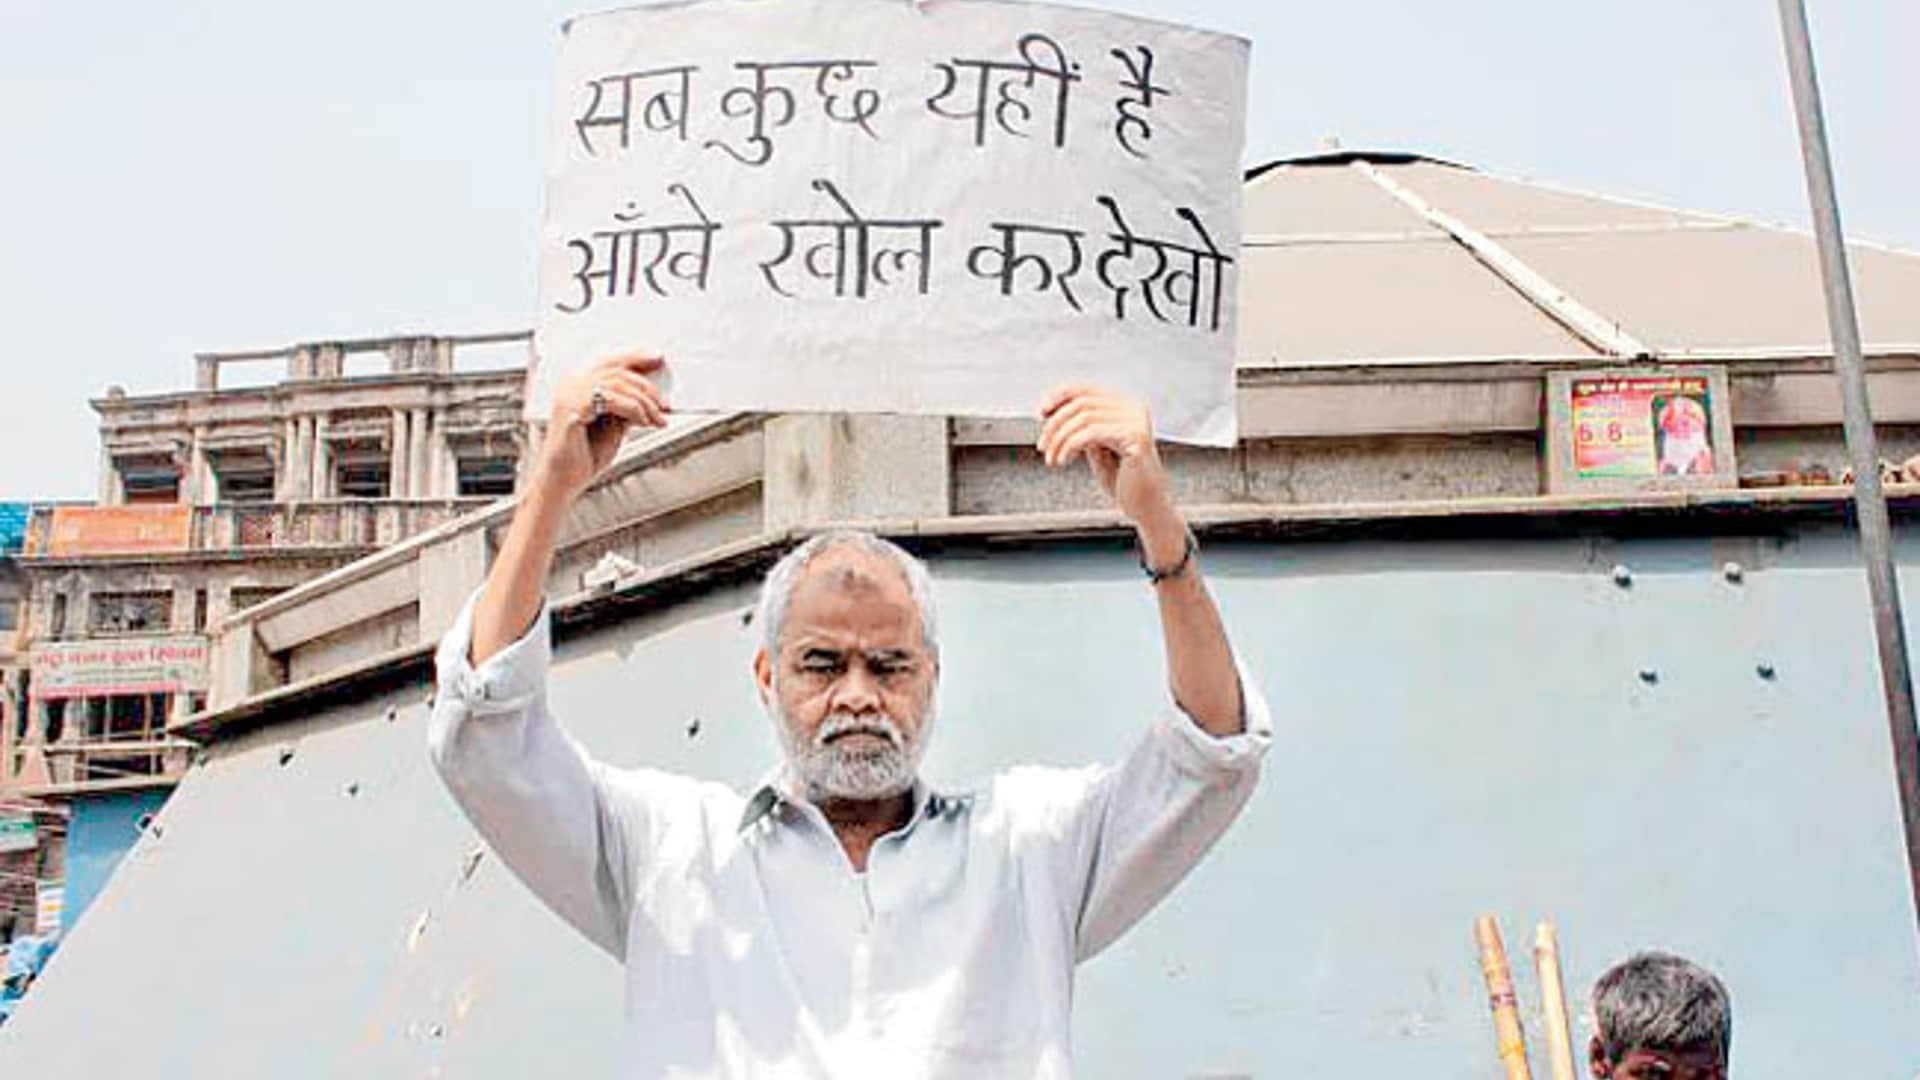 सब कुछ यहीं है
आँखे खोल कर देखो
6 8